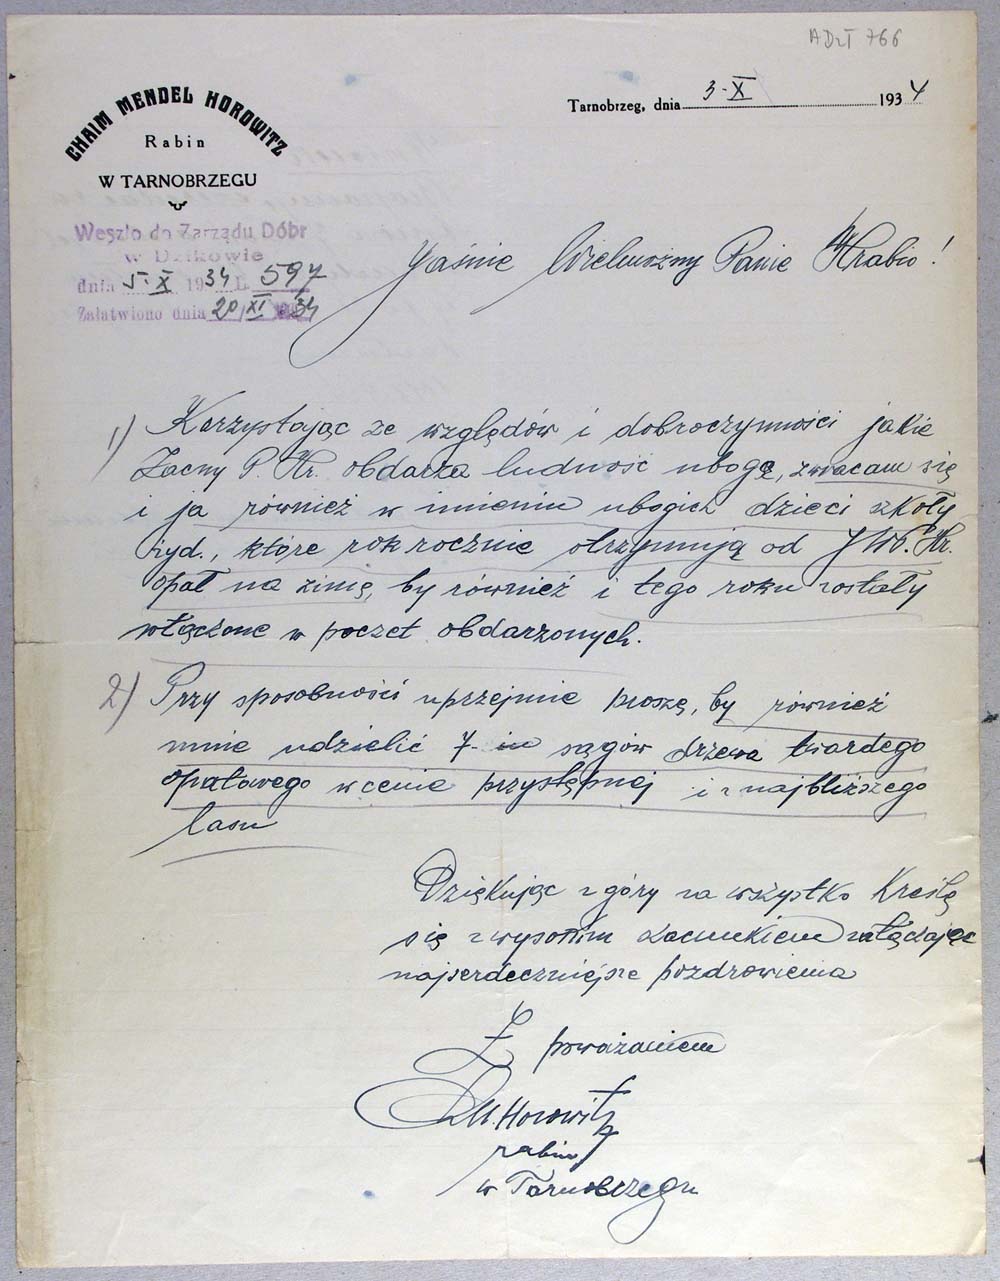 ADzT 766
CHAIM MENDEL HOROWITZ
Rabin
W TARNOBRZEGU
Tarnobrzeg, dnia 3-X 1934
Weszło do Zarządu Dóbr
w Dzikowie
dnia 5-X 1934 L. 597
Załatwiono dnia 20, XI 34
Jaśnie Wielmożny Panie Hrabio!
1) Korzystając ze względów i dobroczynności jakie
Zacny P. Hr. obdarza ludność ubogą, zwracam się
i ja również w imieniu ubogich dzieci szkoły
żyd., które rok rocznie otrzymują od JWP. Hr.
opał na zimę, by również i tego roku zostały
włączone w poczet obdarzonych.
2) Przy sposobności uprzejmie proszę, by również
mnie udzielić 7-iu sągów drzewa twardego
opałowego w cenie przystępnej i z najbliższego
lasu
Dziękując z góry za wszystko kreślę
się z wysokim szacunkiem załączając
najserdeczniejsze pozdrowienia
Z poważaniem
Ch.M. Horowitz
rabin
w Tarnobrzegu